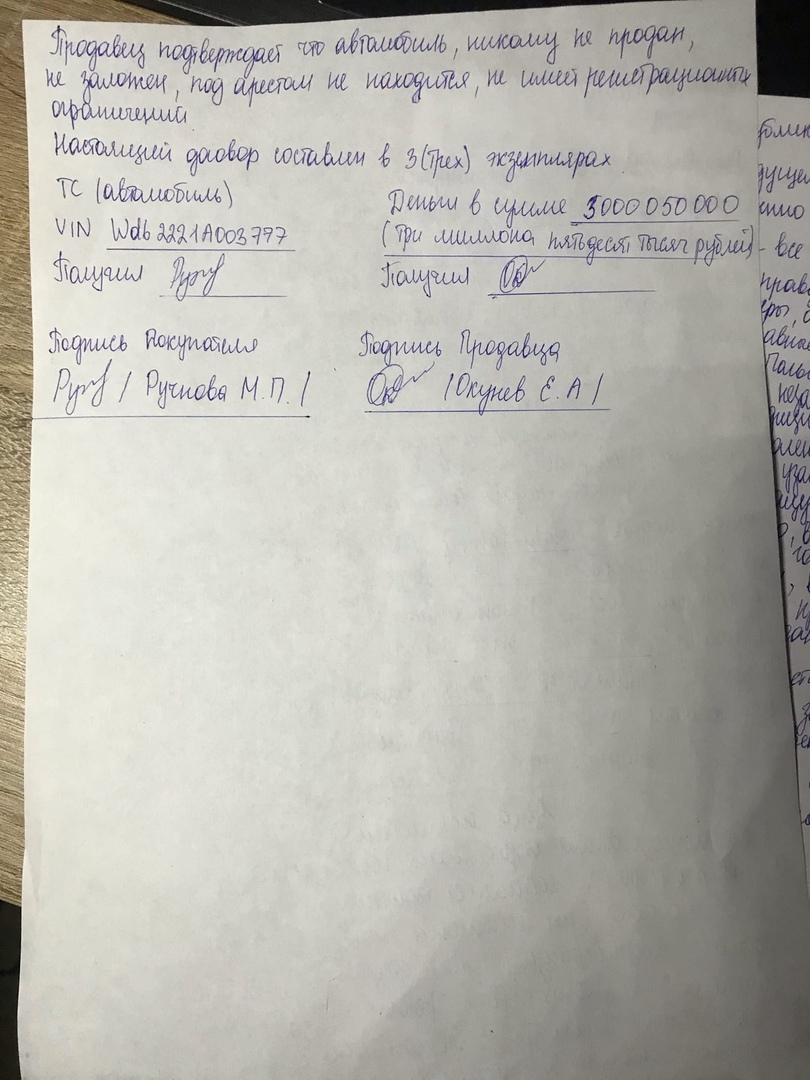 Продавец подтверждает что автомобиль, никому не продан,
не заложен, под арестом не находится, не имеет регистрационных
ограничений
Настоящей договор составлен в 3 (трех) экземплярах
ТС (автомобиль)
VIN Wdb2221A003777
Получил
Деньги в сумме 3000050000
(Три миллиона пятьдесят тысяч рублей)
Получил
Подпись Покупателя
/ Ручнова М.П. /
Подпись Продавца
/Окунев Е.А/
все